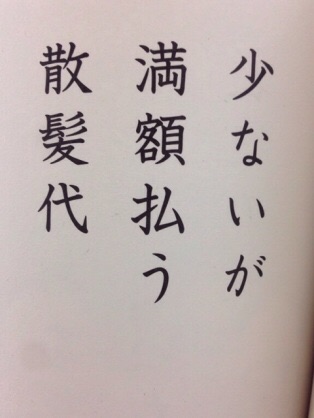 少ないが
満額払う
散髪代